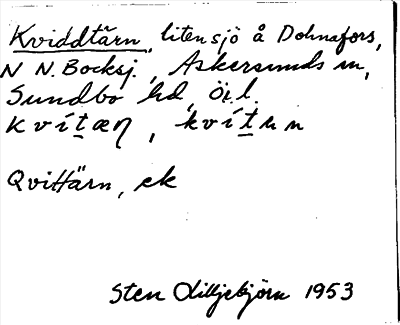 Kviddtärn, liten sjö å Dohnafors,
N N. Bocksj., Askersunds sn,
Sundbo hd, Ör.l.
kvítæn, kvítun
Qvittärn, ek
Sten Lilljebjörn 1953